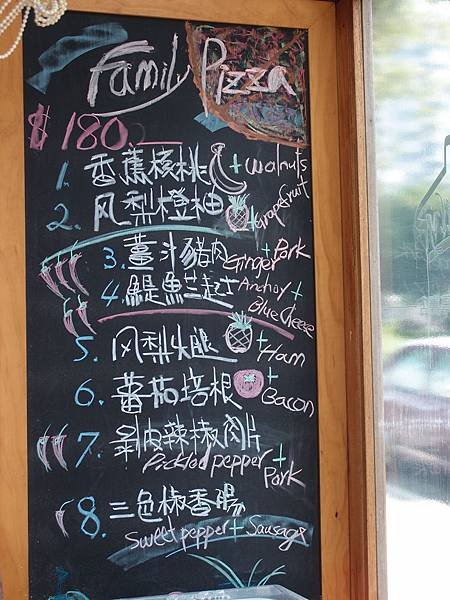 Family Pizza
$180
1. 香蕉核桃 + walnuts
2. 风梨橙柚 + Grapefruit
3. 薑汁豬肉 Ginger + Pork
4. 鯷魚藍起士 Anchoy + Blue Cheese
5. 风梨火腿 + Ham
6. 蕃茄培根 + Bacon
7. 剝皮辣椒肉片
Pickled pepper + Pork
8. 三色椒香腸
Sweet pepper + Sausage